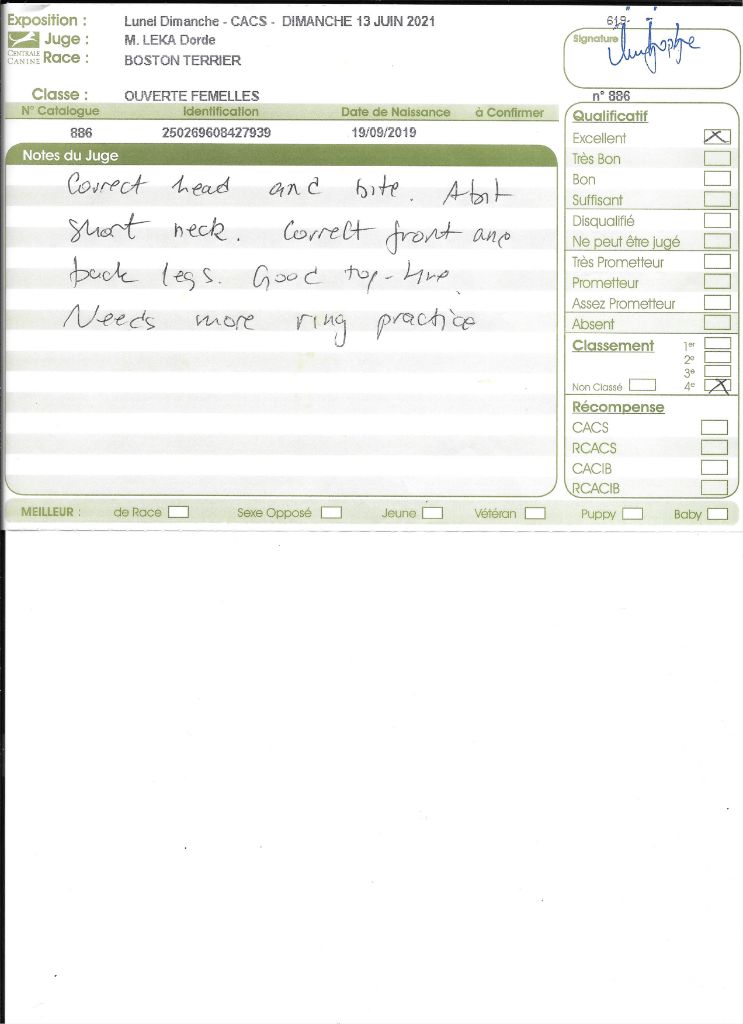 Exposition : Lunel Dimanche - CACS - DIMANCHE 13 JUIN 2021
Juge : M. LEKA Dorde
CENTRALE CANINE
Race : BOSTON TERRIER
Classe : OUVERTE FEMELLES
619-
Signature
n° 886
N° Catalogue Identification Date de Naissance à Confirmer
886 250269608427939 19/09/2019
Notes du Juge
Correct head and bite. A bit
short neck. Correct front and
back legs. Good top-line.
Needs more ring practice
Qualificatif
Excellent X
Très Bon
Bon
Suffisant
Disqualifié
Ne peut être jugé
Très Prometteur
Prometteur
Assez Prometteur
Absent
Classement 1er
2e
3e
Non Classé 4e X
Récompense
CACS
RCACS
CACIB
RCACIB
MEILLEUR : de Race Sexe Opposé Jeune Vétéran Puppy Baby